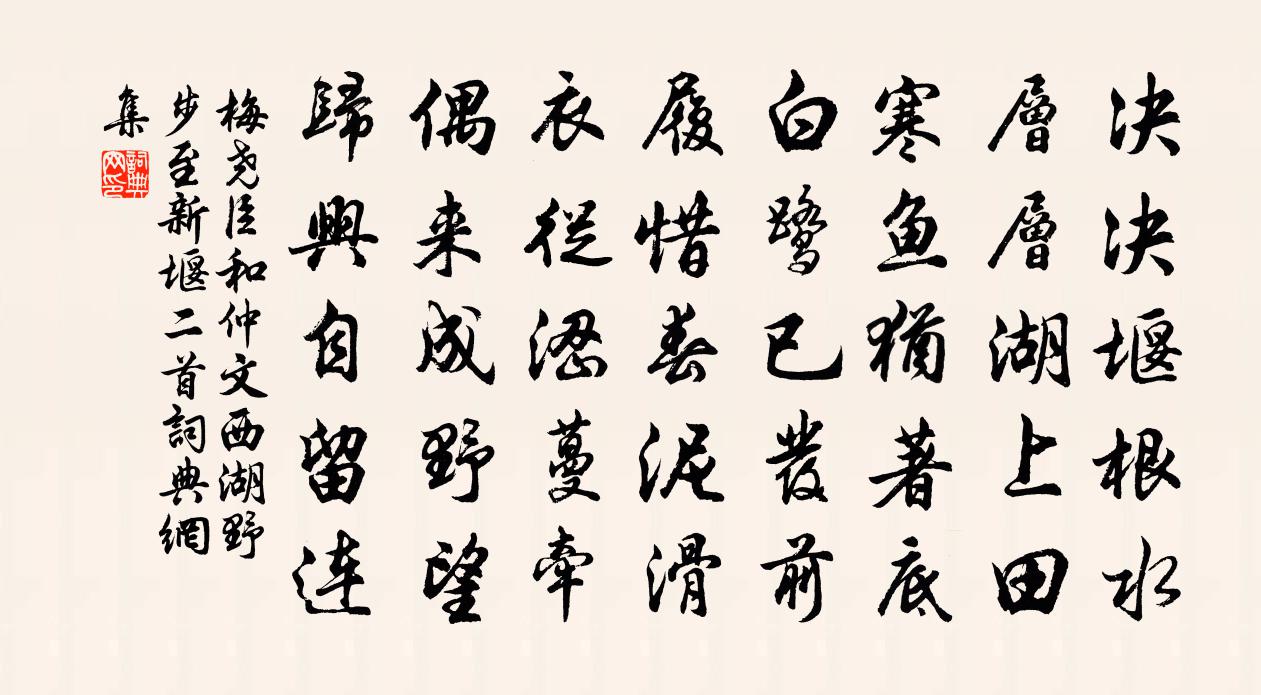 决决堰根水
層層湖上田
寒魚猶著底
白鷺已發前
履惜春泥滑
衣從澀蔓牽
偶来成野望
歸興自留连
梅尧臣和仲文西湖野
步至新堰二首詞典網
集
詞典網印